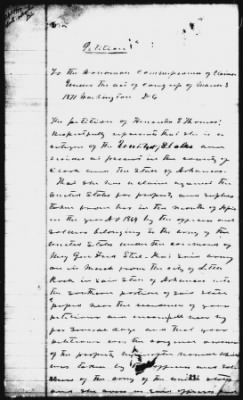 Petition
To the Honorable Commissioners of Claims
Under the act of Congress of March 3
1871 Washington D C
The petition of Amanda E Thomas
Respectfully represents that she is a
citizen of the United States and
resides at present in the county of
and the State of Arkansas
That she has a claim against the
United States for property and supplies
taken from her in the month of
in the year AD 1864 by the officers and
soldiers belonging to the army of the
United States under the command of
Maj Genl Fred Steele Said army
on its march from the city of Little
Rock in said State of Arkansas into
the southern portion of said State
passed near the residence of your
petitioner and encamped near by
for several days and that your
petitioner was the owner
of the property
was taken by officers and sol-
diers of the army of the united states
and she